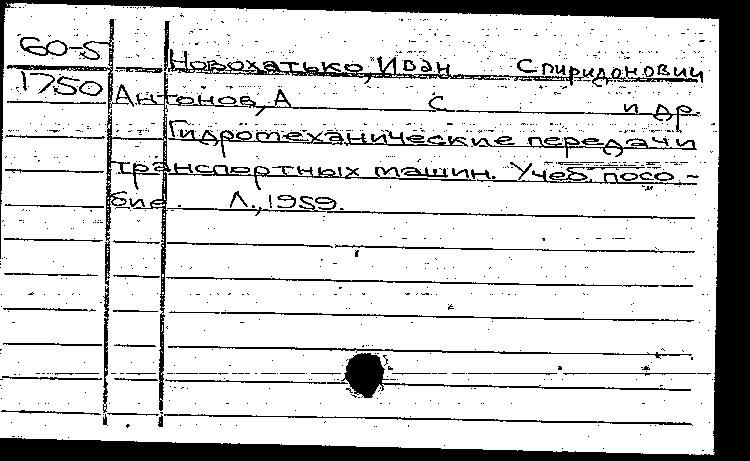 60-5
1750
Новохатько, Иван Спиридонович
Антонов, А С и др.
Гидротеханические передачи
транспортных машин. Учеб. посо-
бие. Л., 1959.